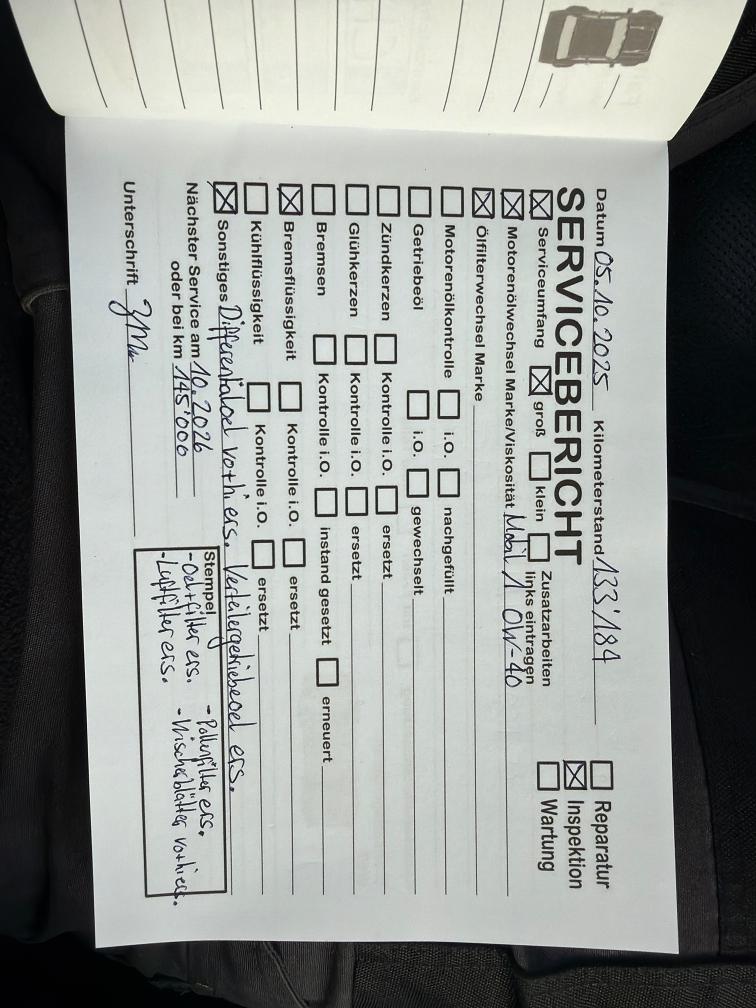 Datum 05.10.2025 Kilometerstand 133'184
SERVICEBERICHT
Reparatur
Inspektion
Wartung
Serviceumfang groß klein Zusatzarbeiten links eintragen
Motorenölwechsel Marke/Viskosität Mobil 1 0W-40
Ölfilterwechsel Marke
Motorenölkontrolle i.O. nachgefüllt
Getriebeöl i.O. gewechselt
Zündkerzen Kontrolle i.O. ersetzt
Glühkerzen Kontrolle i.O. ersetzt
Bremsen Kontrolle i.O. instand gesetzt erneuert
Bremsflüssigkeit Kontrolle i.O. ersetzt
Kühlflüssigkeit Kontrolle i.O. ersetzt
Sonstiges Differentialoel vo+hi ers. Verteilergetriebeoel ers.
Nächster Service am 10.2026
oder bei km 145'000
Unterschrift
Stempel
-Oel+filter ers. -Pollenfilter ers.
-Luftfilter ers. -Wischerblätter vo+hi ers.